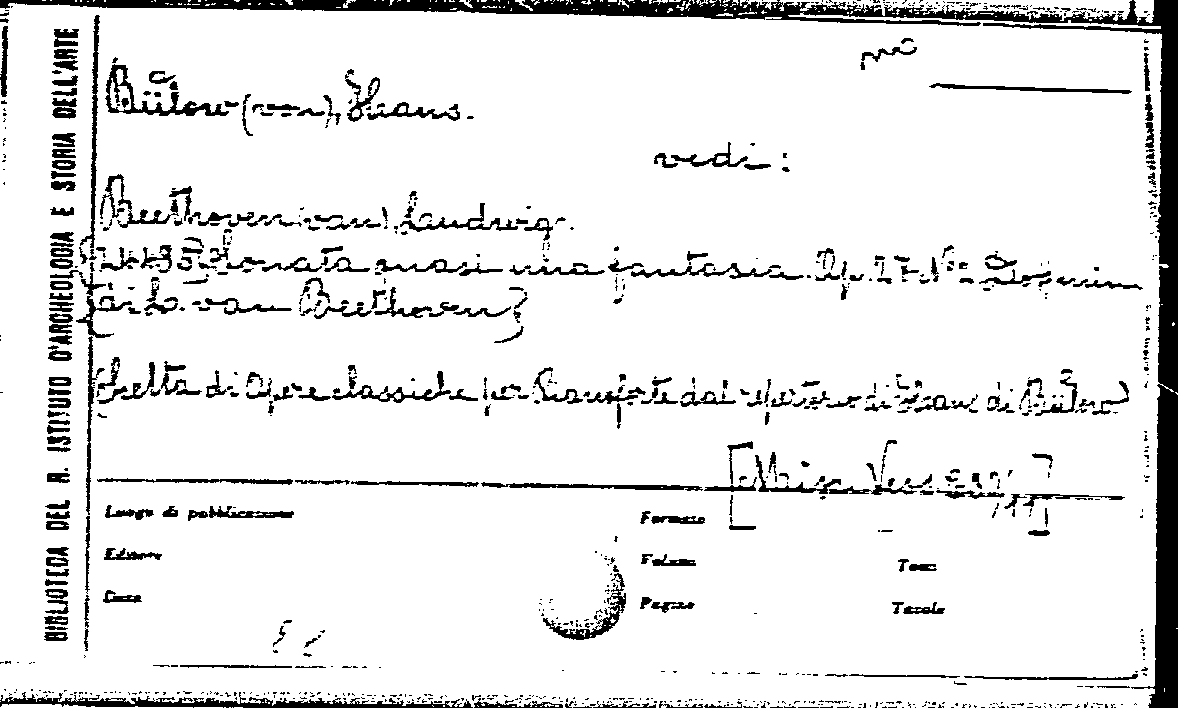 BIBLIOTECA DEL R. ISTITUTO D'ARCHEOLOGIA E STORIA DELL'ARTE
Bülow (von), Hans.
vedi:
Beethoven (van), Laudwig.
Sonata quasi una fantasia. Op. 27. Nº 2
di L. van Beethoven}
Scelta di Opere classiche per Pianoforte dal repertorio di Hans di Bülow
Luogo di pubblicazione
Formato
Editore
Volumi
Tomi
Data
Pagine
Tavole